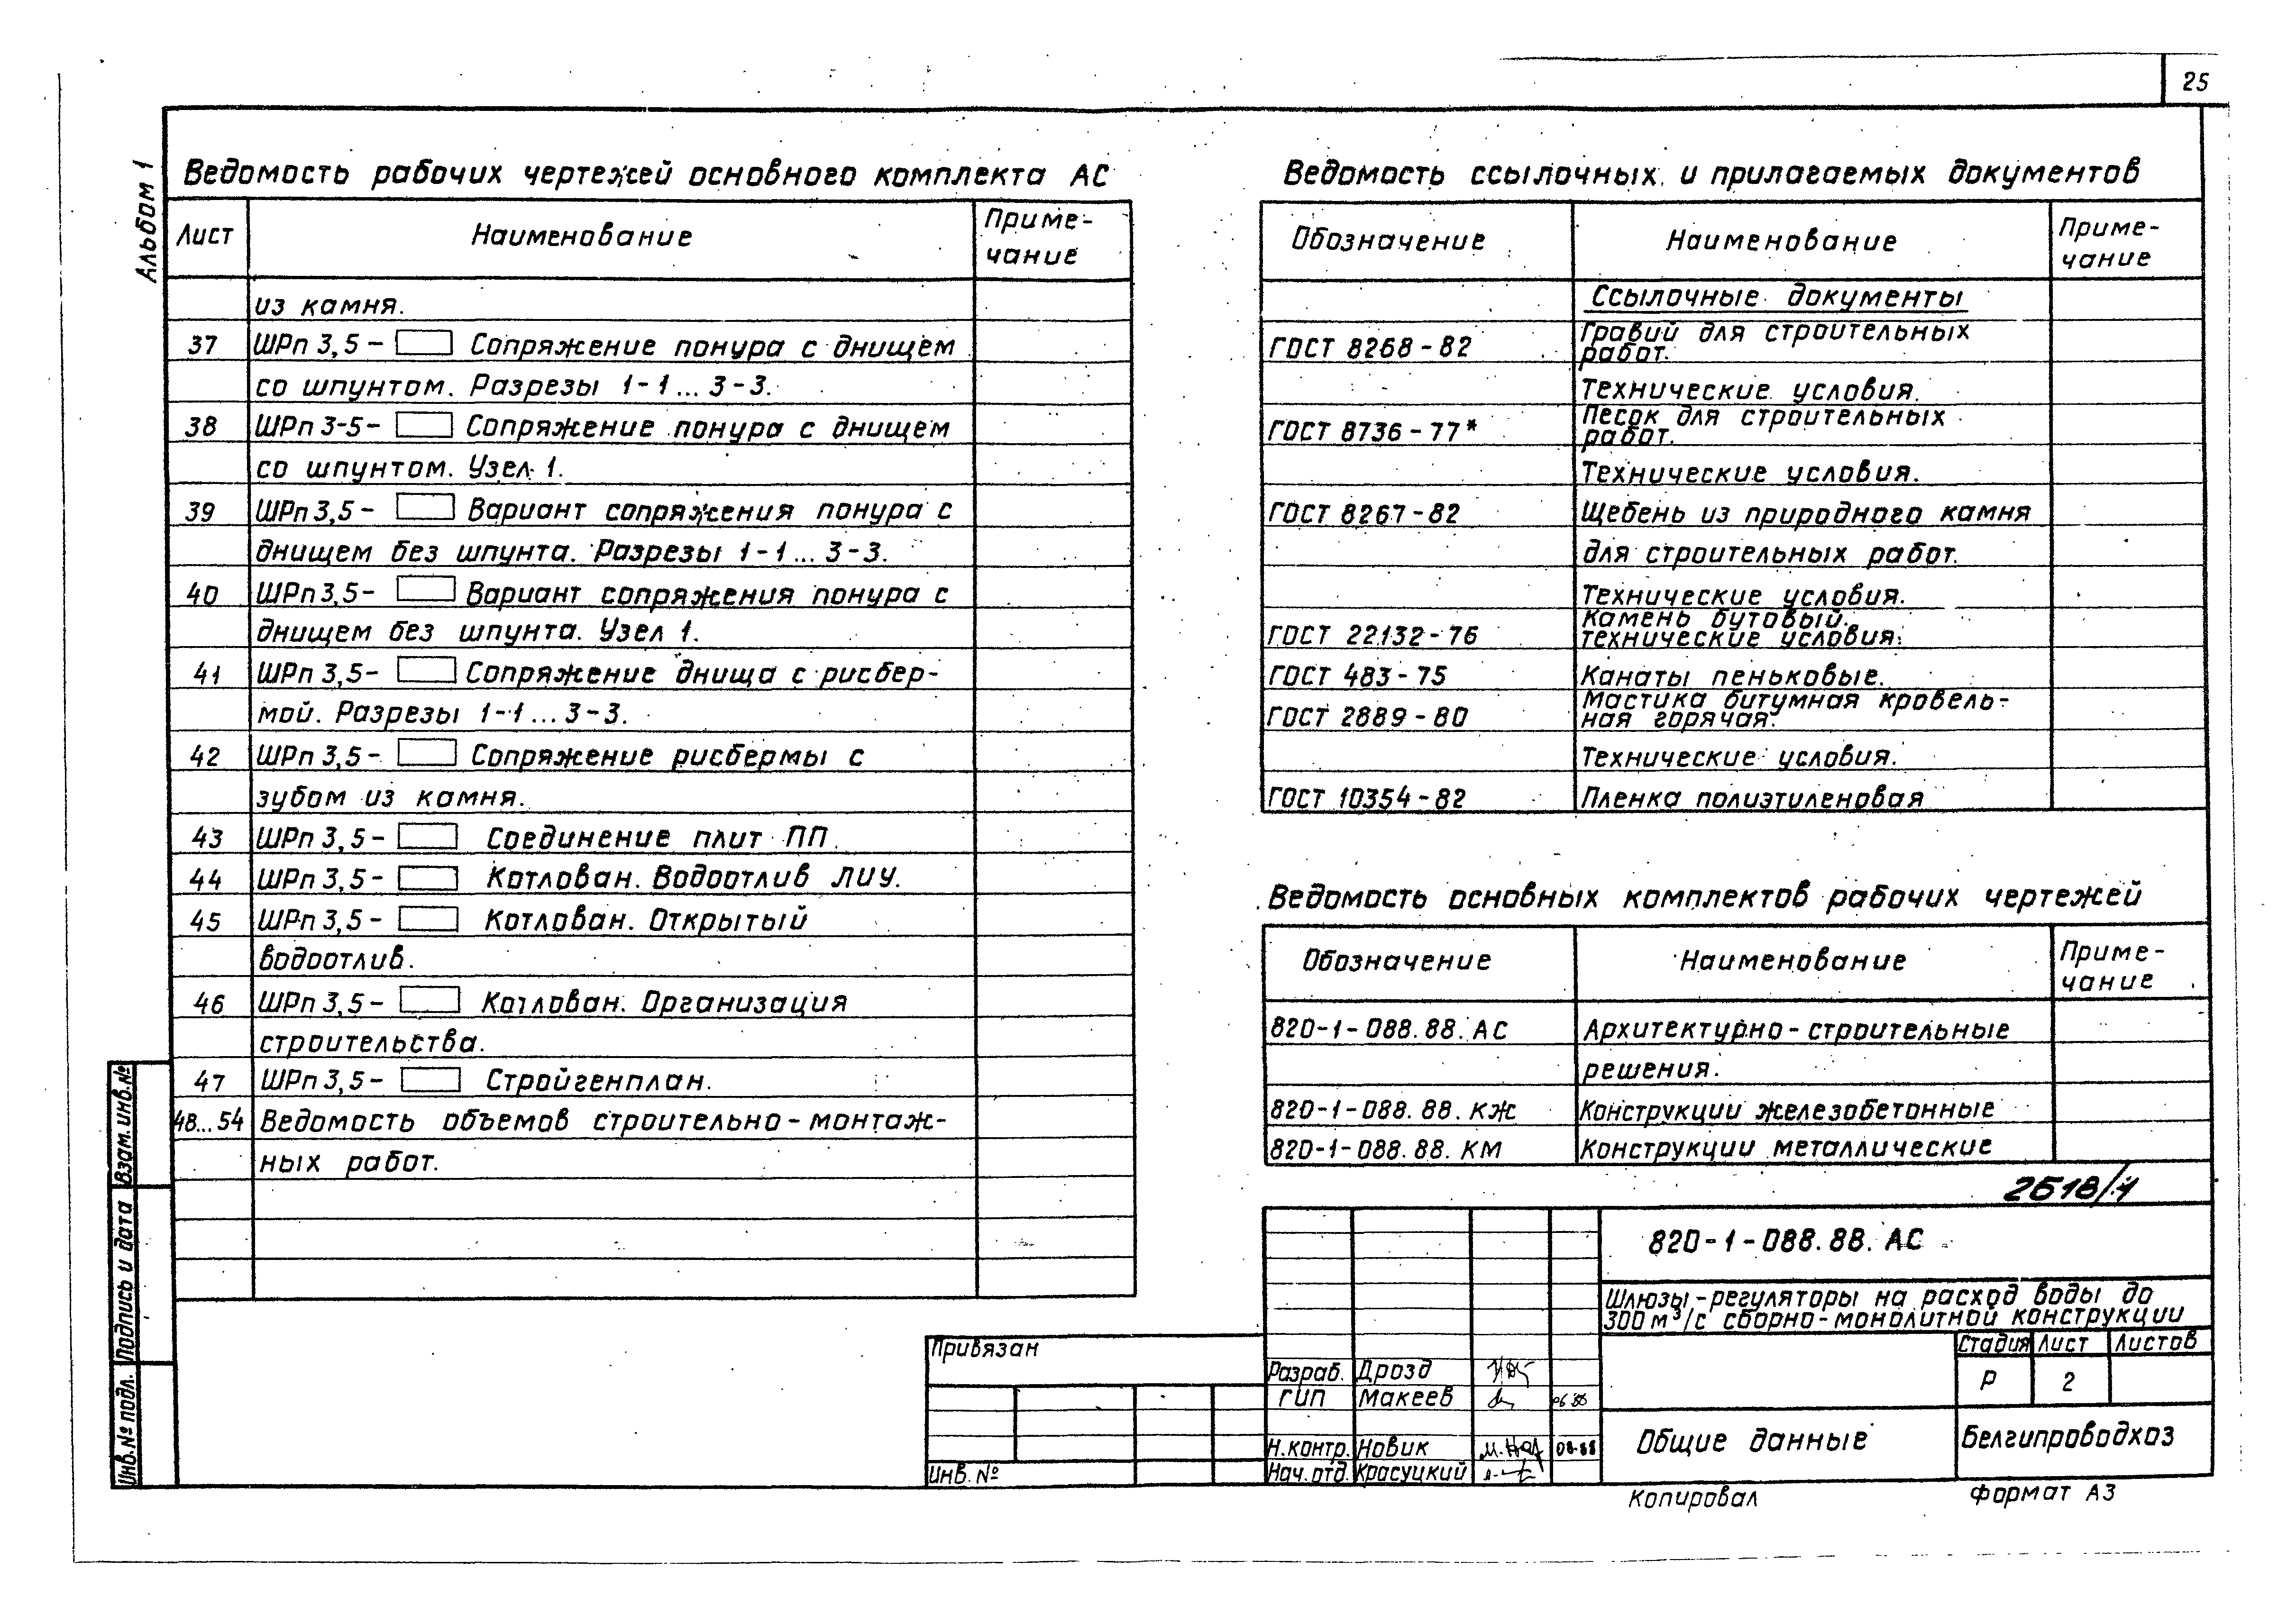 25
Альбом 1
Ведомость рабочих чертежей основного комплекта АС
Лист Наименование Приме-
чание
из камня.
37 ШРп 3,5- Сопряжение понура с днищем
со шпунтом. Разрезы 1-1...3-3.
38 ШРп 3-5- Сопряжение понура с днищем
со шпунтом. Узел 1.
39 ШРп 3,5- Вариант сопряжения понура с
днищем без шпунта. Разрезы 1-1...3-3.
40 ШРп 3,5- Вариант сопряжения понура с
днищем без шпунта. Узел 1.
41 ШРп 3,5- Сопряжение днища с рисбер-
мой. Разрезы 1-1...3-3.
42 ШРп 3,5- Сопряжение рисбермы с
зубом из камня.
43 ШРп 3,5- Соединение плит ПП
44 ШРп 3,5- Котлован. Водоотлив ЛИУ.
45 ШРп 3,5- Котлован. Открытый
водоотлив.
46 ШРп 3,5- Котлован. Организация
строительства.
47 ШРп 3,5- Стройгенплан.
48...54 Ведомость объемов строительно-монтаж-
ных работ.
Ведомость ссылочных и прилагаемых документов
Обозначение Наименование Приме-
чание
Ссылочные документы
ГОСТ 8268-82 Гравий для строительных
работ.
Технические условия.
ГОСТ 8736-77* Песок для строительных
работ.
Технические условия.
ГОСТ 8267-82 Щебень из природного камня
для строительных работ.
Технические условия.
ГОСТ 22132-76 Камень бутовый.
технические условия.
ГОСТ 483-75 Канаты пеньковые.
ГОСТ 2889-80 Мастика битумная кровель-
ная горячая.
Технические условия.
ГОСТ 10354-82 Пленка полиэтиленовая
Ведомость основных комплектов рабочих чертежей
Обозначение Наименование Приме-
чание
820-1-088.88.АС Архитектурно-строительные
решения.
820-1-088.88.КЖ Конструкции железобетонные
820-1-088.88.КМ Конструкции металлические
2518/1
820-1-088.88.АС
Шлюзы-регуляторы на расход воды до
300 м³/с сборно-монолитной конструкции
Стадия Лист Листов
Р 2
Общие данные
Белгипроводхоз
Разраб. Дрозд
ГИП Макеев 06.88
Н.контр. Новик 08-88
Нач.отд. Красуцкий
Привязан
Инв.№
Взам.инв.№
Подпись и дата
Инв.№ подл.
Копировал
Формат А3